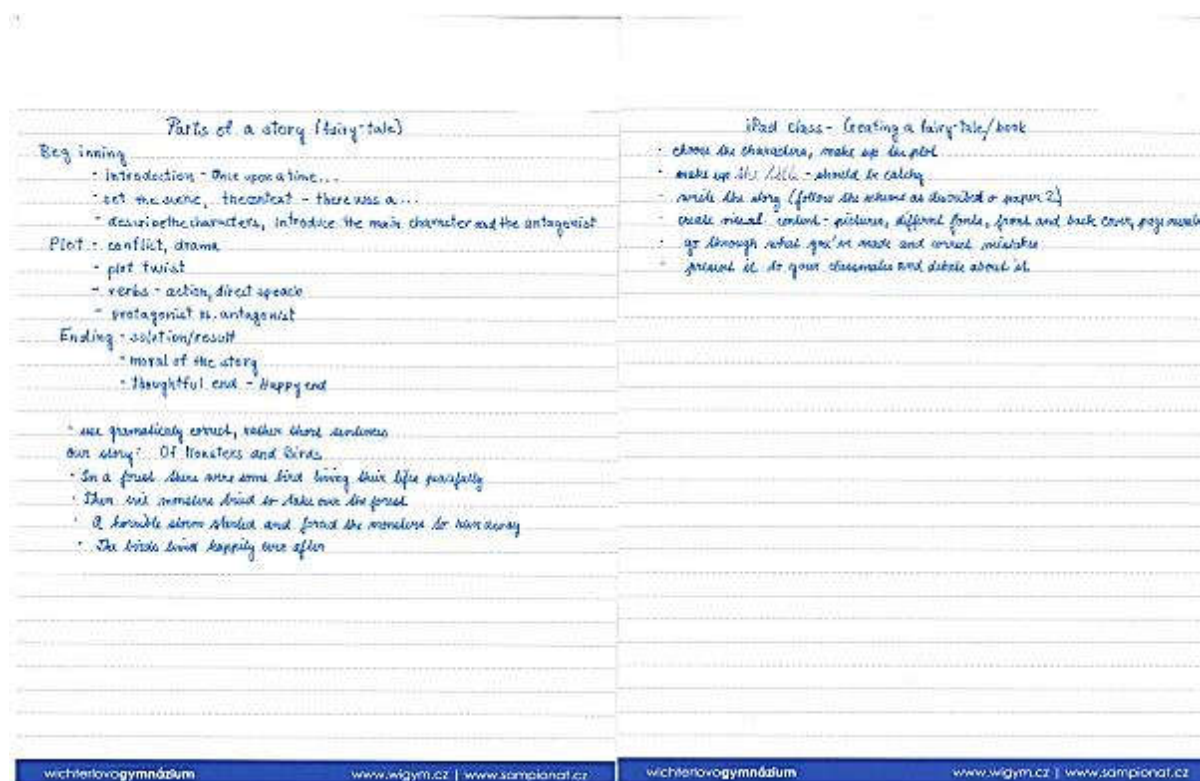 Parts of a story (fairy-tale)
Beginning
- introduction - Once upon a time...
- set the scene, the context - there was a...
- describe the characters, introduce the main character and the antagonist
Plot - conflict, drama
- plot twist
- verbs - action, direct speach
- protagonist vs. antagonist
Ending - solution/result
- moral of the story
- thoughtful end - Happy end
- use gramaticaly correct, rather short sentences
Our story: Of Monsters and Birds
- In a forest there were some bird living their life peacefully
- Then evil monsters tried to take over the forest
- A horrible storm started and forced the monsters to run away
- The birds lived happily ever after
wichterlovogymnázium www.wigym.cz | www.sampionat.cz
iPad class - Creating a fairy-tale/book
- choose the characters, make up the plot
- make up the title - should be catchy
- write the story (follow the scheme as described o paper 2)
- create visual content - pictures, different fonts, front and back cover, page
- go through what you've made and correct mistakes
- present it to your classmates and debate about it
wichterlovogymnázium www.wigym.cz | www.sampionat.cz